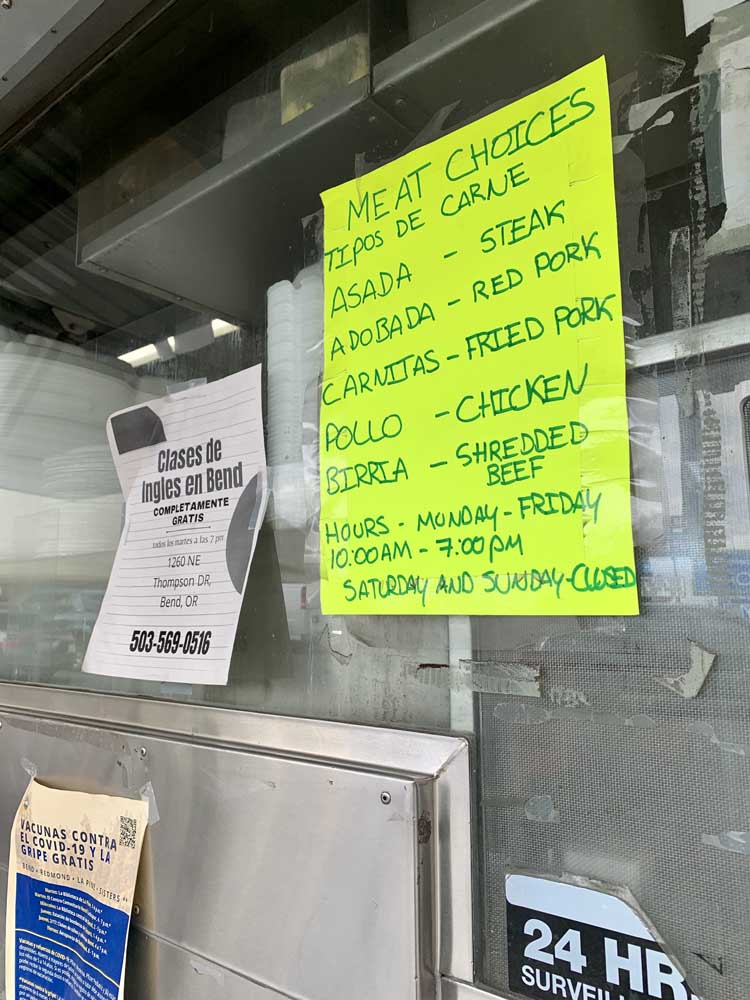 MEAT CHOICES
TIPOS DE CARNE
ASADA - STEAK
ADOBADA - RED PORK
CARNITAS - FRIED PORK
POLLO - CHICKEN
BIRRIA - SHREDDED
BEEF
HOURS - MONDAY - FRIDAY
10:00AM - 7:00PM
SATURDAY AND SUNDAY - CLOSED
Clases de
Ingles en Bend
COMPLETAMENTE
GRATIS
todos los martes a las 7 pm
1260 NE
Thompson DR,
Bend, OR
503-569-0516
VACUNAS CONTRA
EL COVID-19 Y LA
GRIPE GRATIS
BEND • REDMOND • LA PINE • SISTERS
24 HR